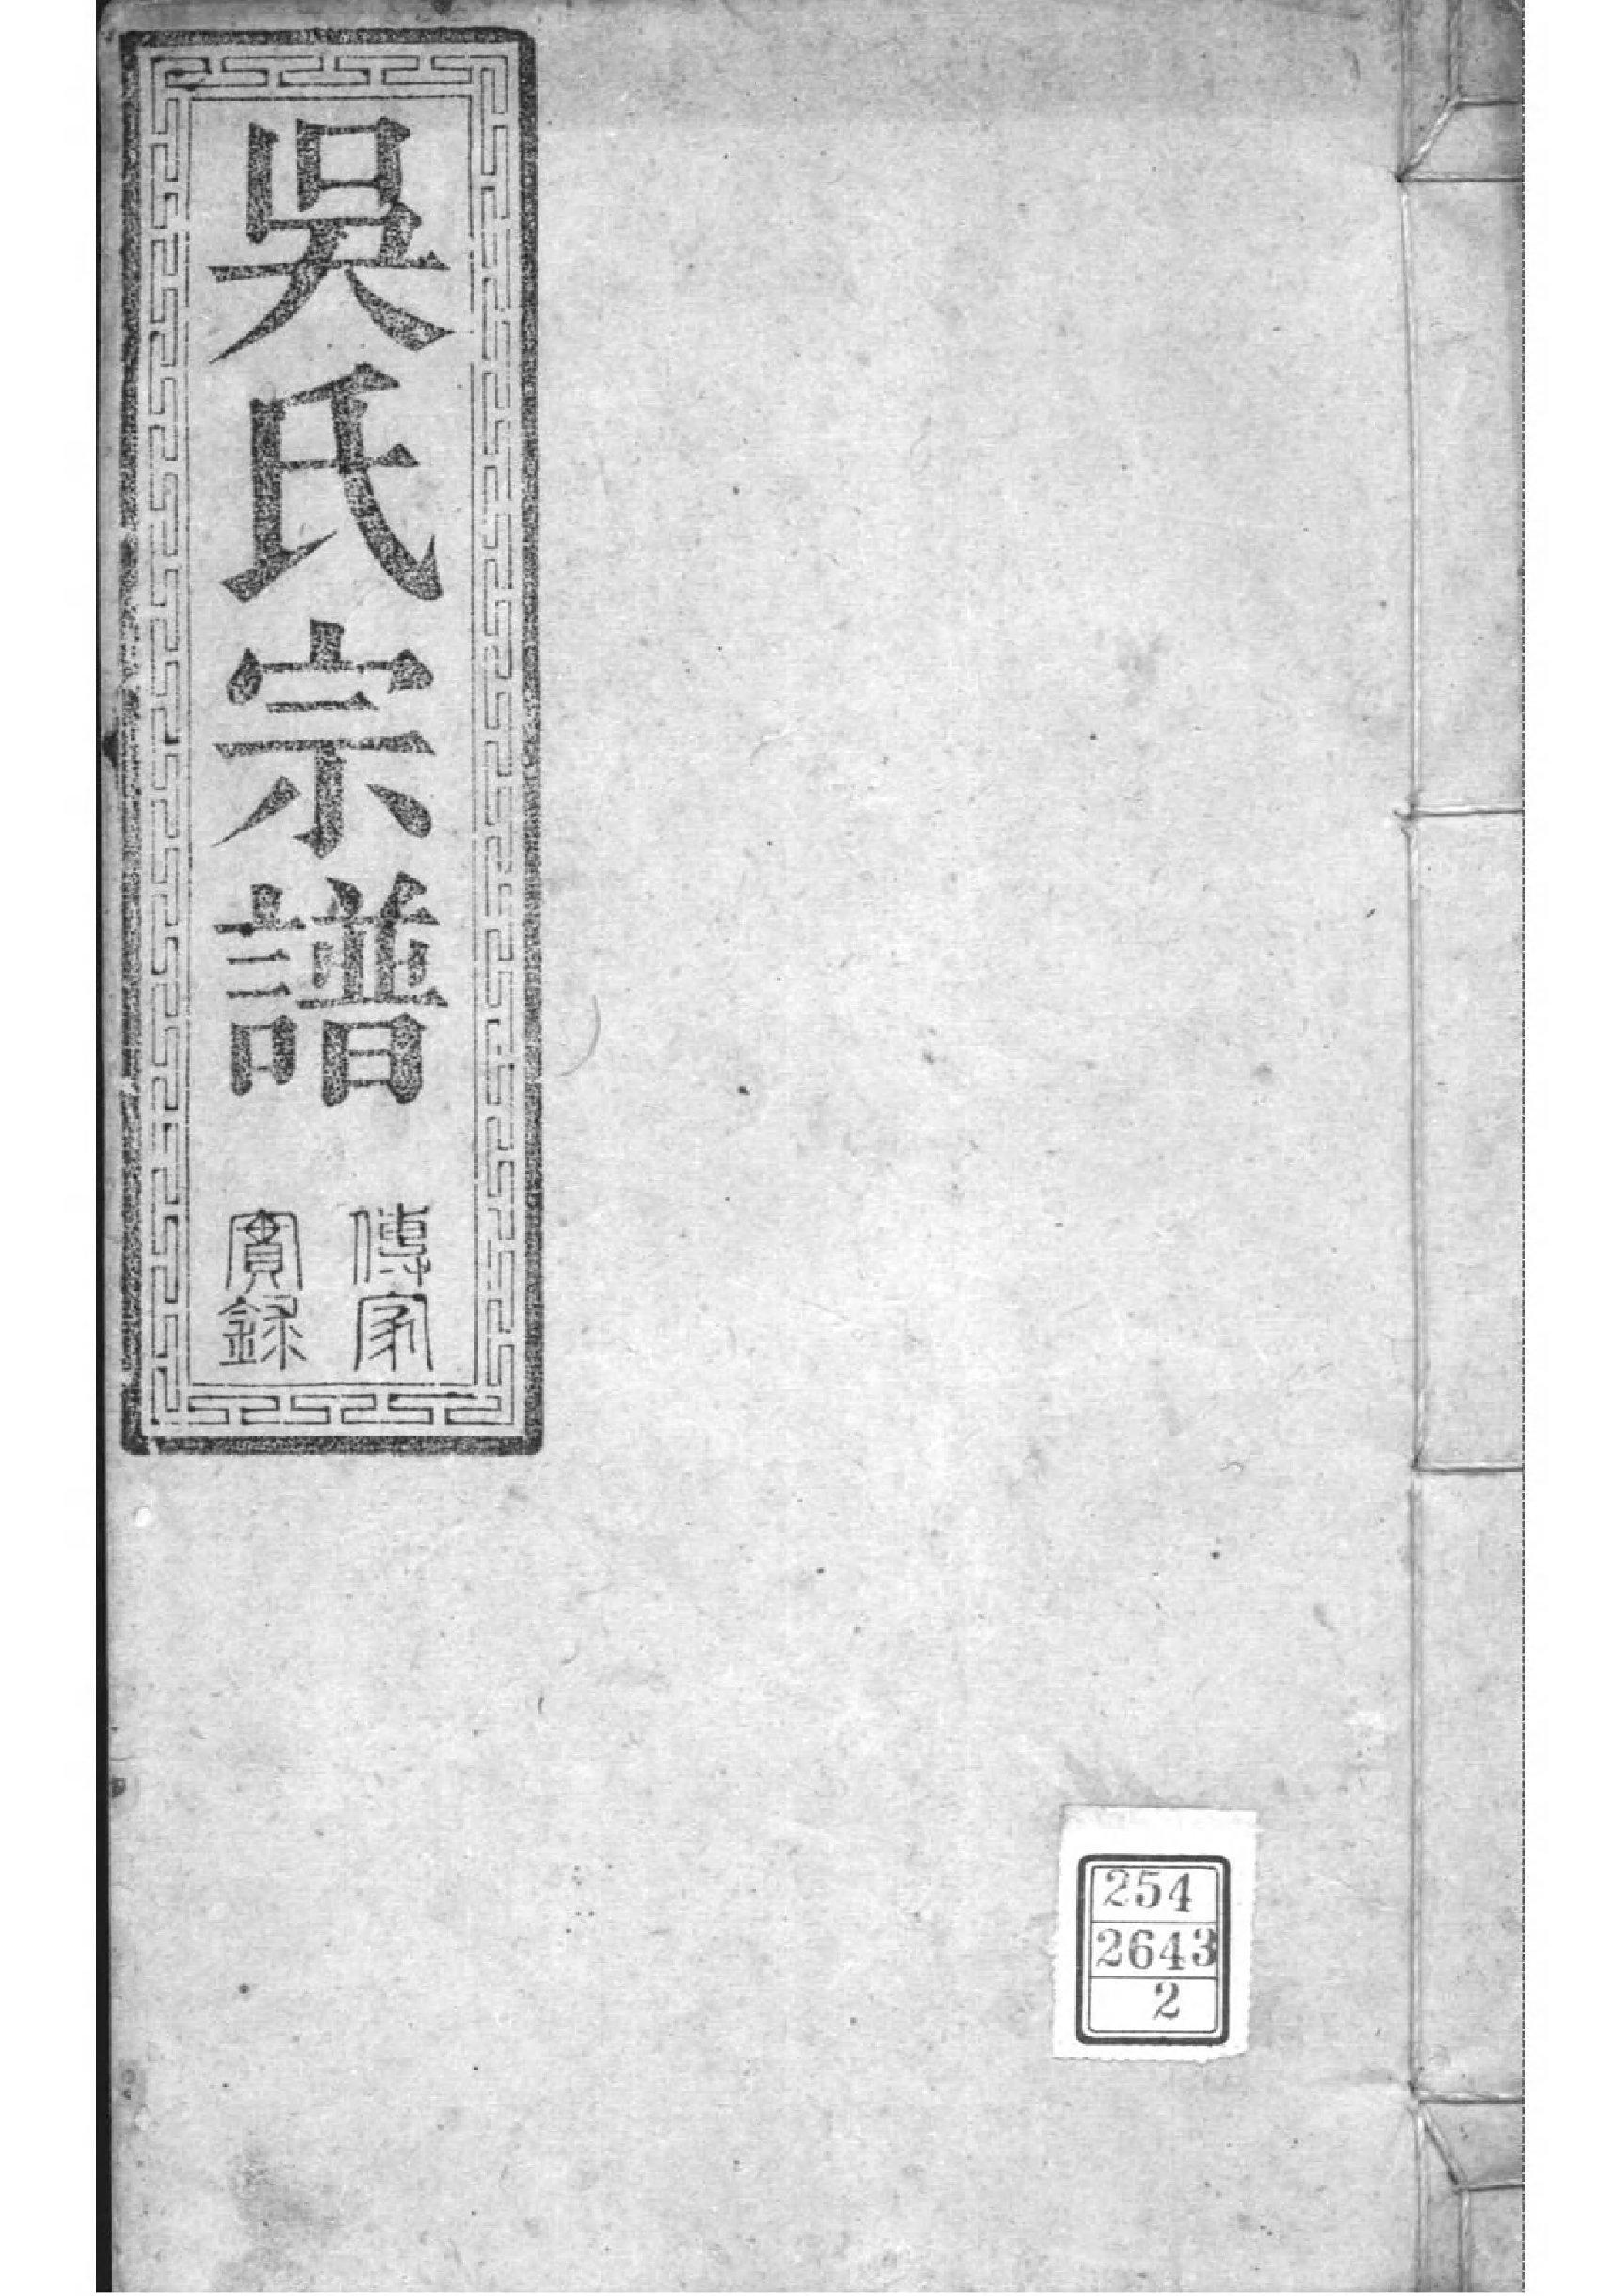 吳氏宗譜
傳家
實錄
254
2643
2